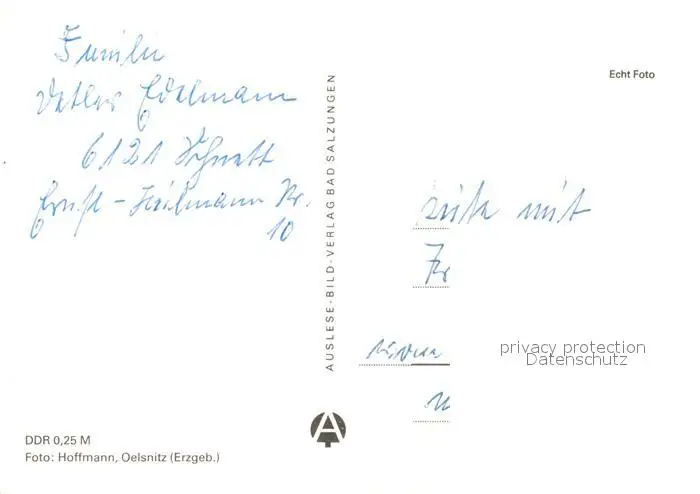 Familie
Detlef Edelmann
6121 Schnett
Ernst-Heilmann Str.
10
AUSLESE-BILD-VERLAG BAD SALZUNGEN
Echt Foto
mit
privacy protection
Datenschutz
A
DDR 0,25 M
Foto: Hoffmann, Oelsnitz (Erzgeb.)